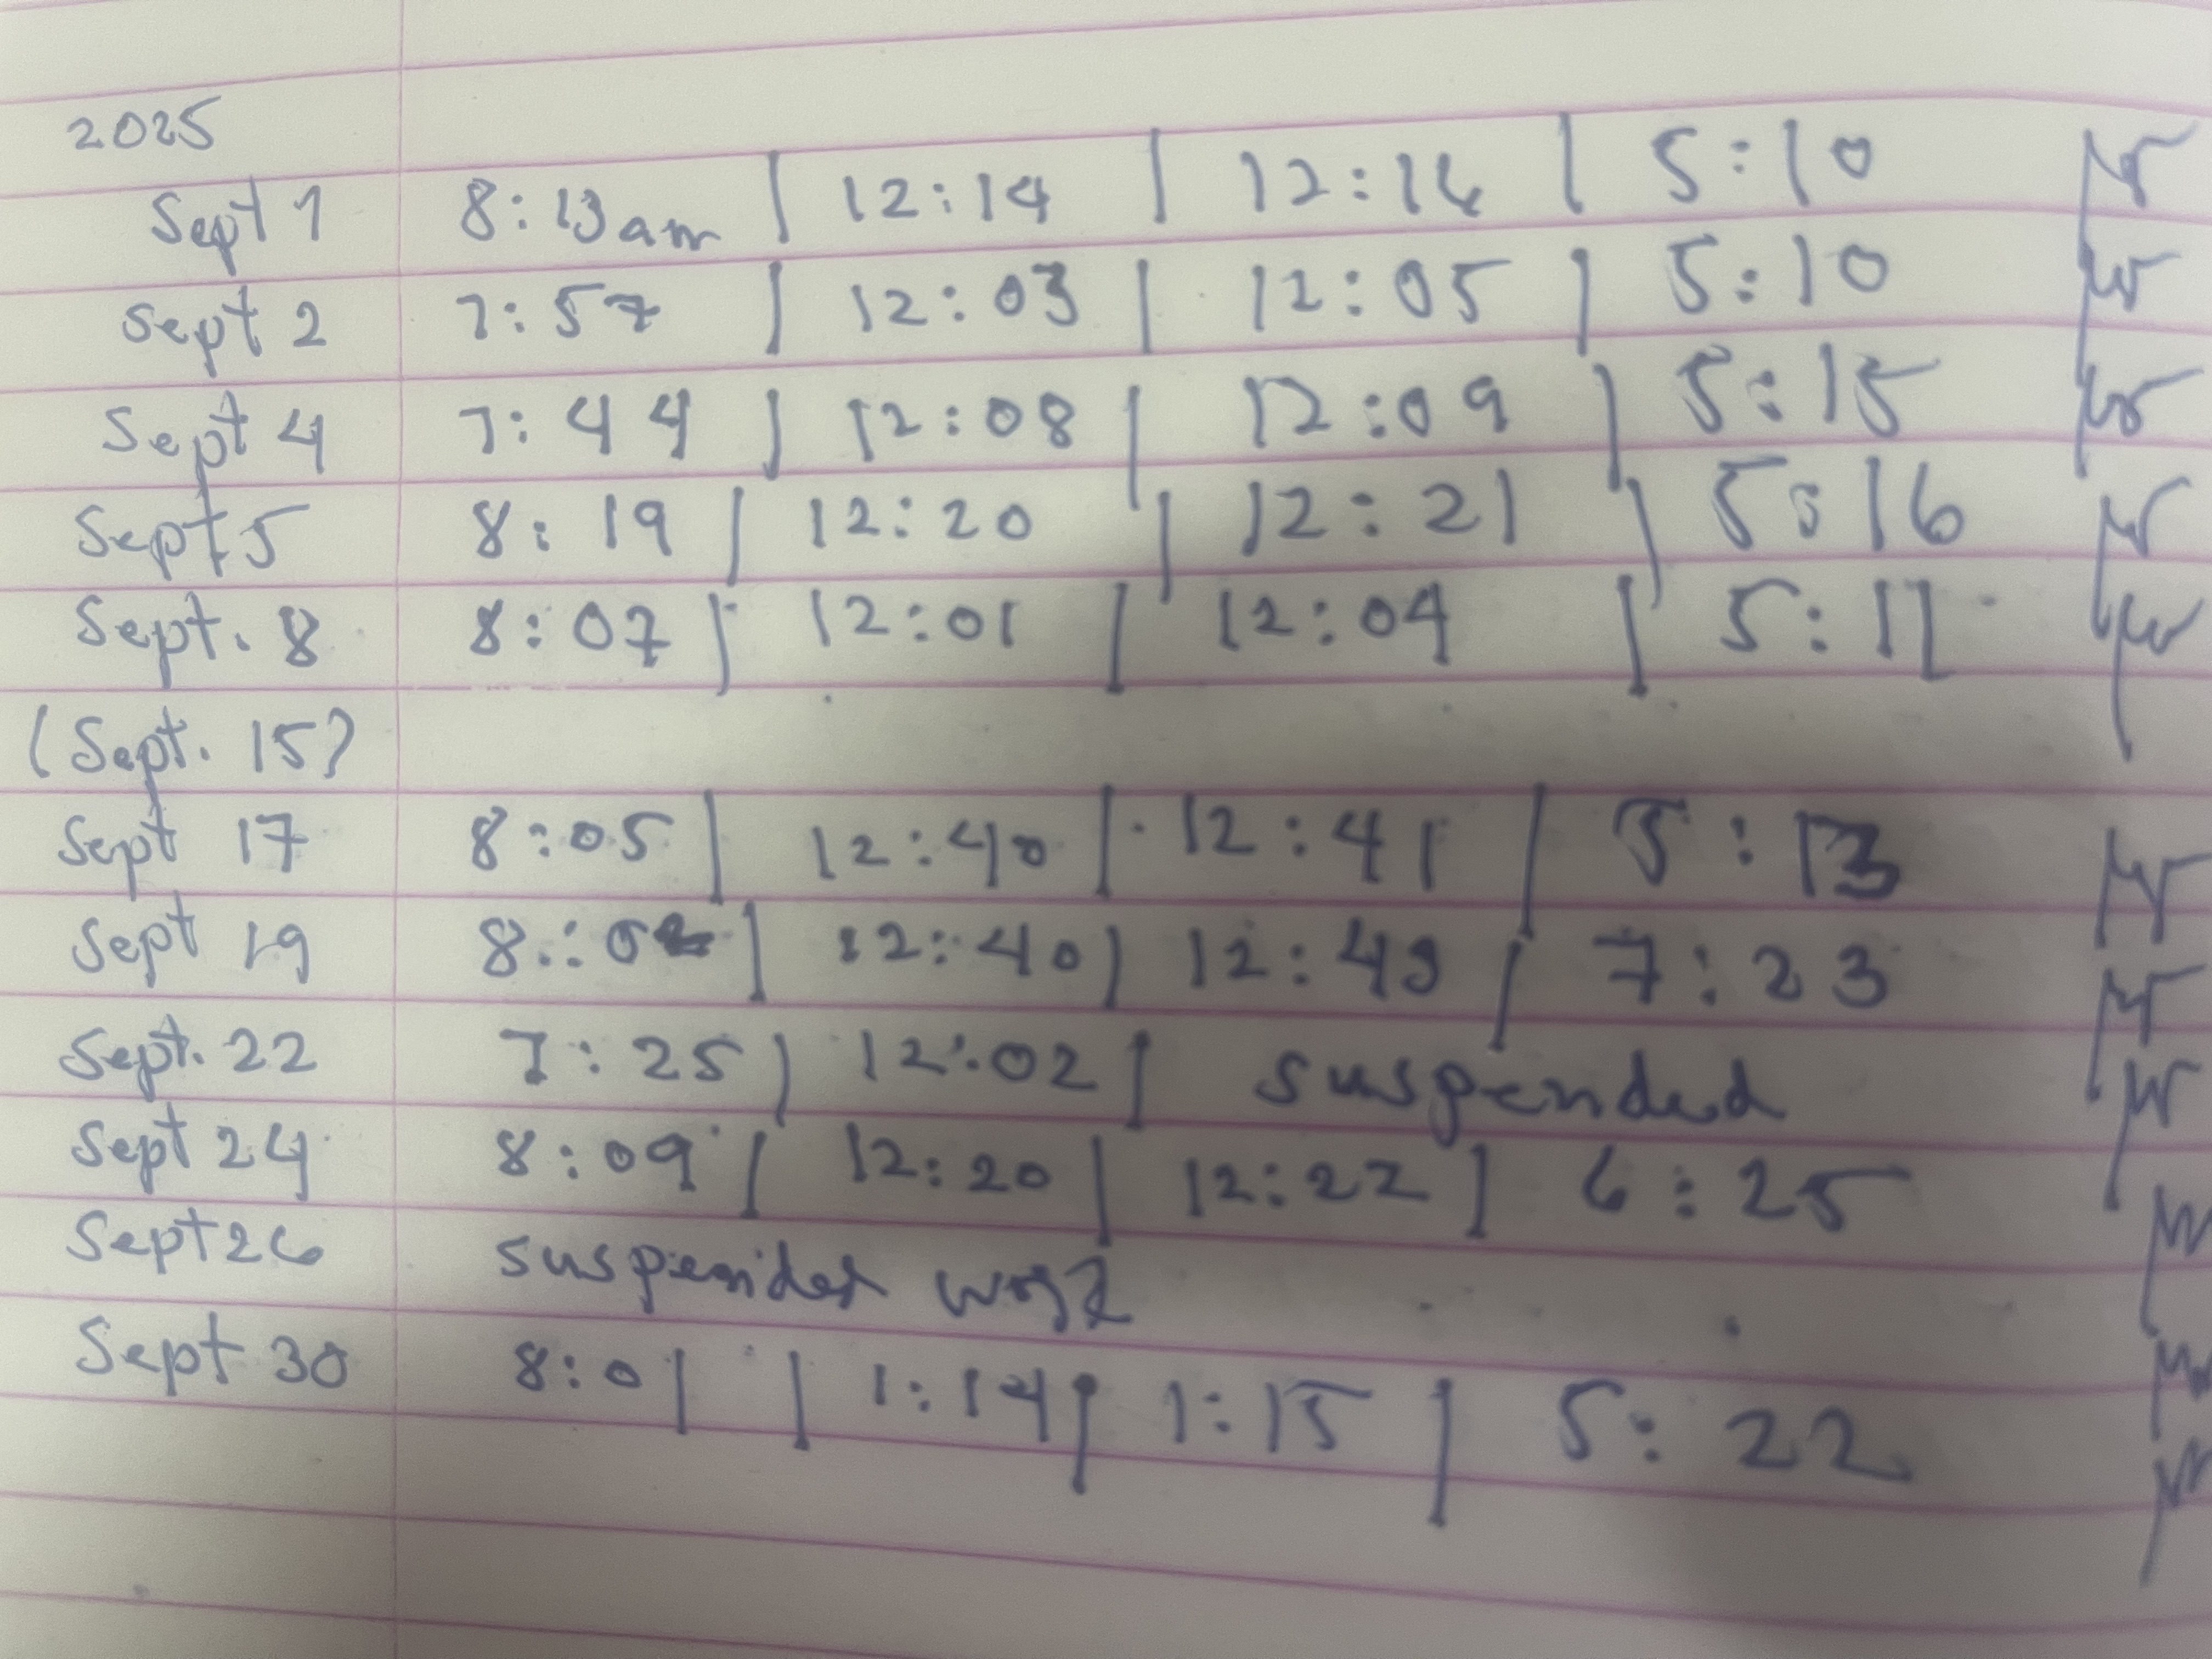 2025
Sept 1 8:13am | 12:14 | 12:16 | 5:10
Sept 2 7:57 | 12:03 | 12:05 | 5:10
Sept 4 7:44 | 12:08 | 12:09 | 5:15
Sept 5 8:19 | 12:20 | 12:21 | 5:16
Sept. 8 8:07 | 12:01 | 12:04 | 5:11
(Sept. 15)
Sept 17 8:05 | 12:40 | 12:41 | 5:13
Sept 19 | 12:40 | | 7:23
Sept. 22 7:25 | 12:02 | suspended
Sept 24 8:09 | 12:20 | 12:22 | 6:25
Sept 26 suspended work
Sept 30 8:01 | 1:14 | 1:15 | 5:22